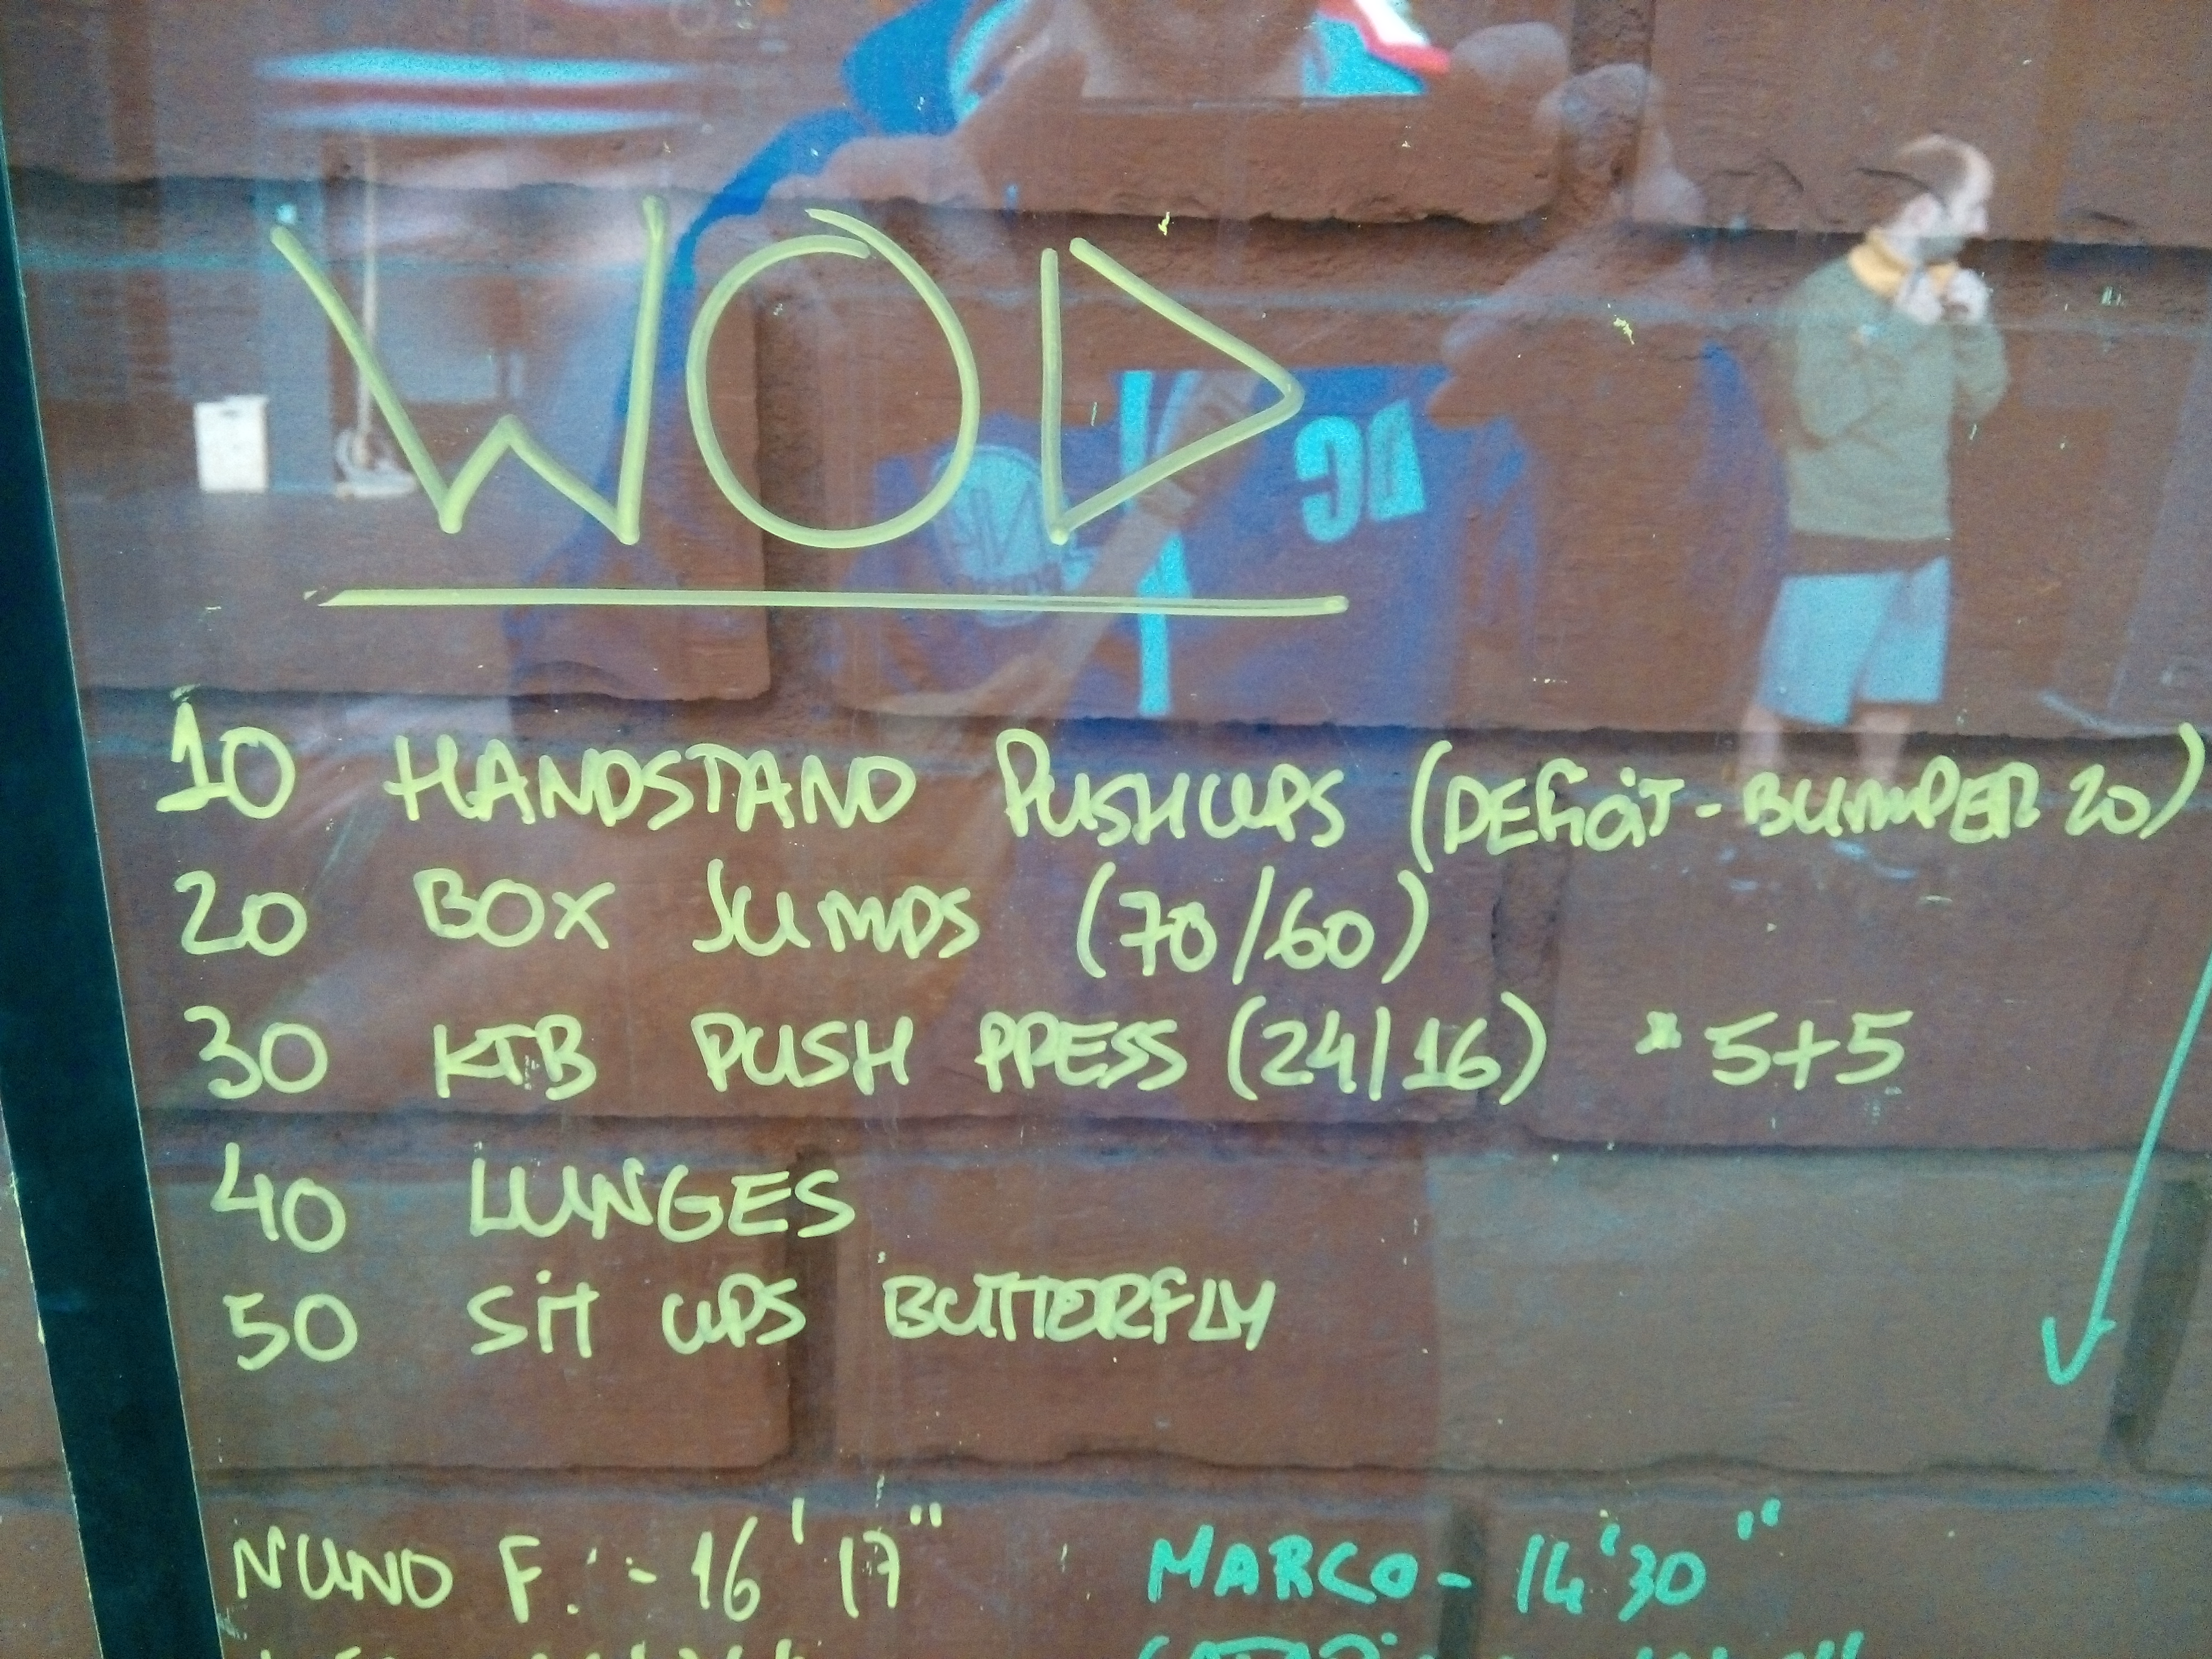 WOD
10 HANDSTAND PUSHUPS (DEFICIT - BUMPER 20)
20 BOX JUMPS (70/60)
30 KTB PUSH PRESS (24/16) * 5+5
40 LUNGES
50 SIT UPS BUTTERFLY
NUNO F. - 16' 17" MARCO - 14'30"
DC